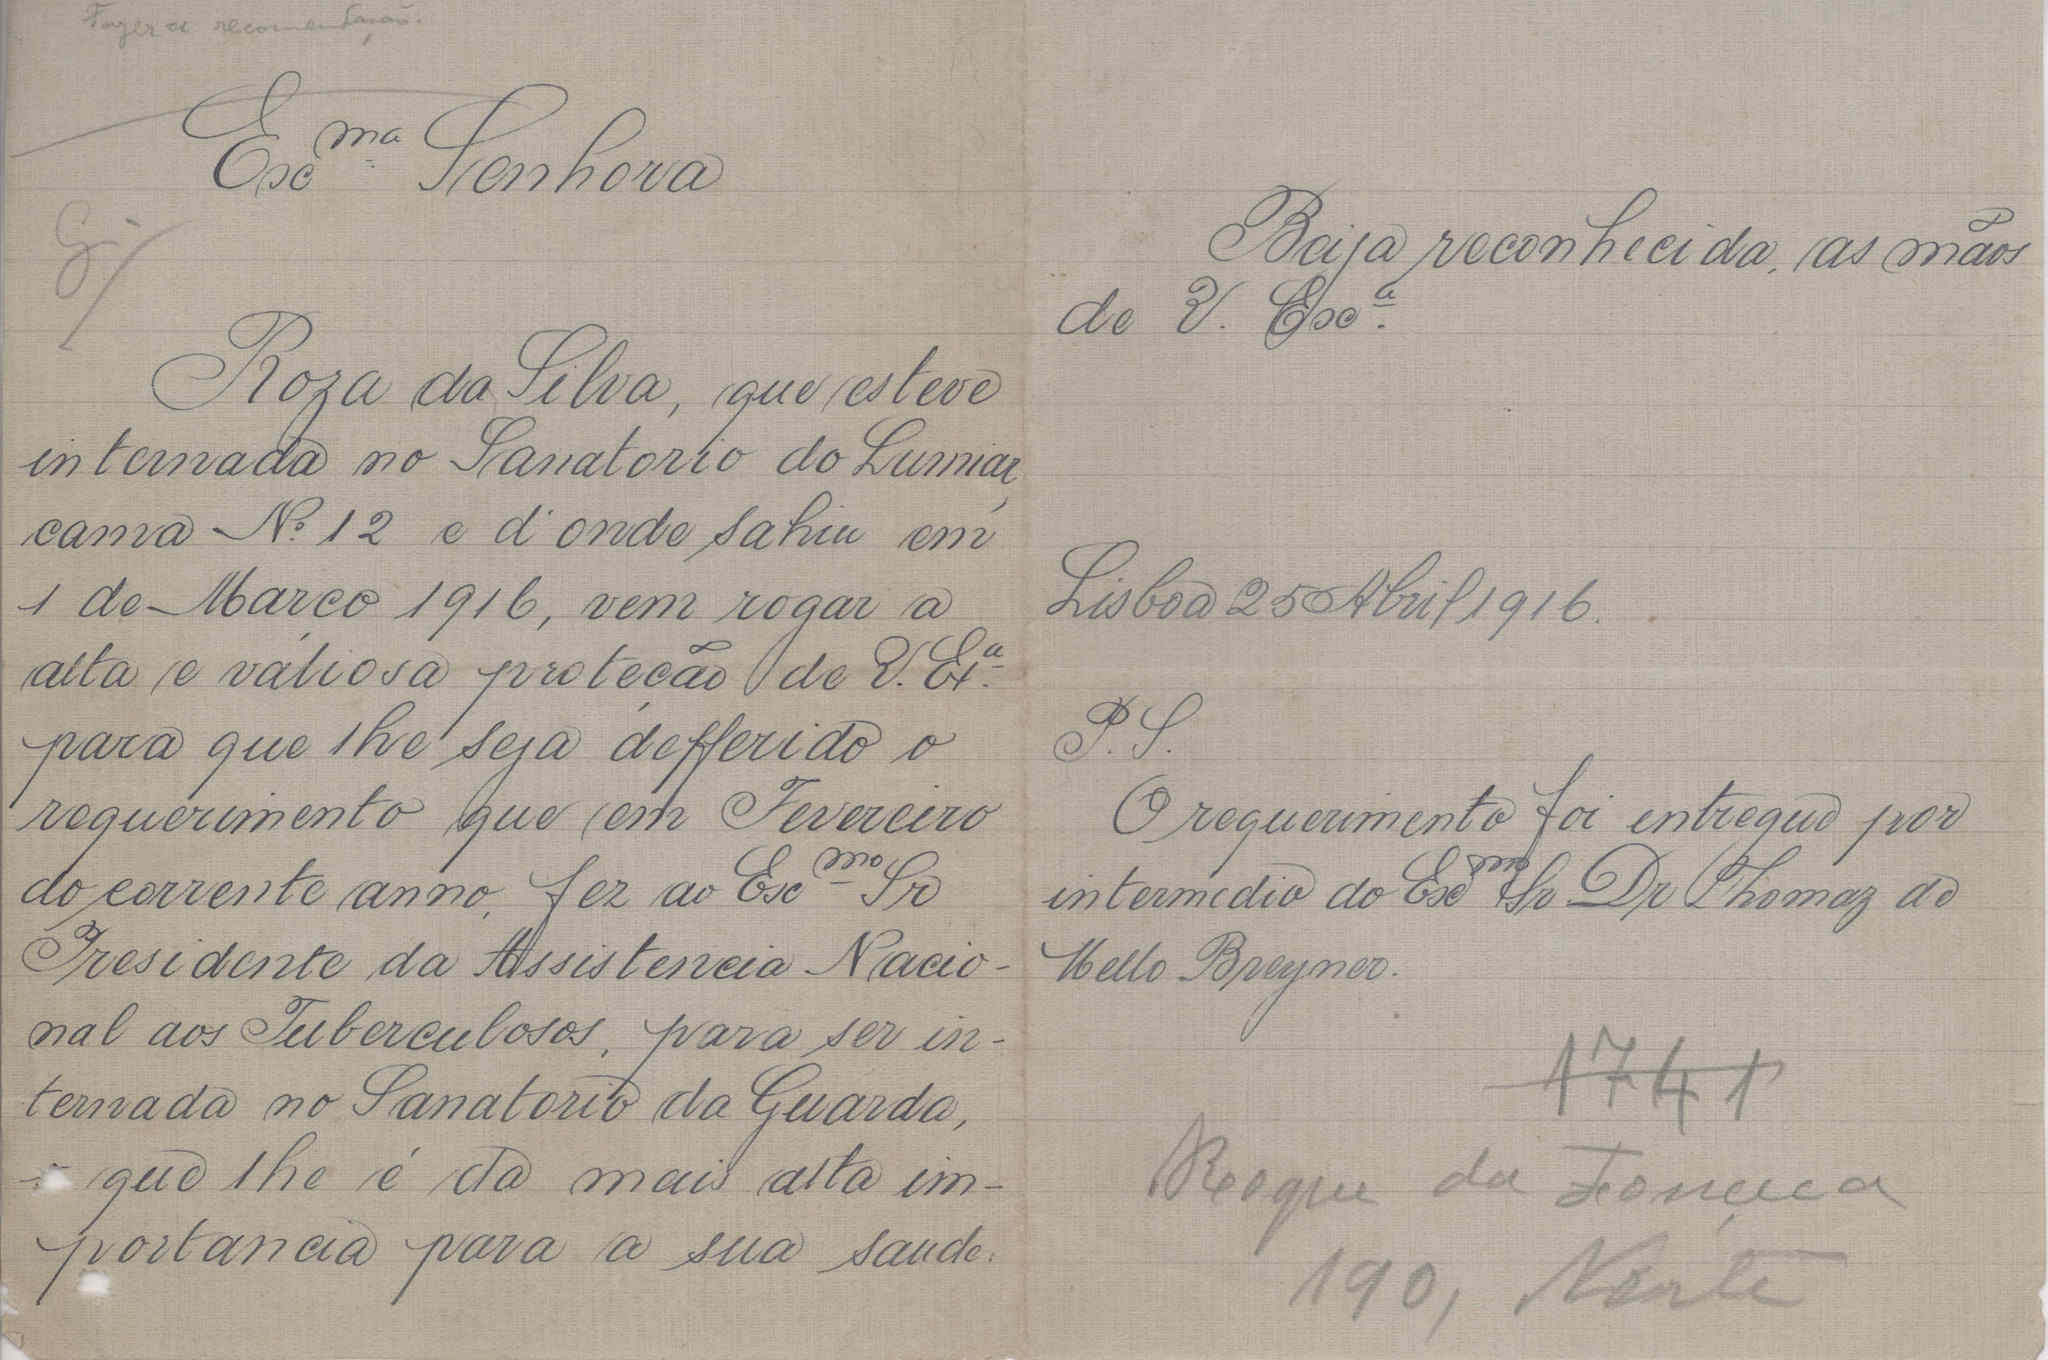 Fazer a recomendação.
Excma Senhora
Roza da Silva, que esteve
internada no Sanatorio do Lumiar,
cama Nº 12 e d'onde sahiu em
1 de Março 1916, vem rogar a
alta e valiosa proteção de V. Exª
para que lhe seja defferido o
requerimento que em Fevereiro
do corrente anno, fez ao Excmo Sr
Presidente da Assistencia Nacio-
nal aos Tuberculosos, para ser in-
ternada no Sanatorio da Guarda,
que lhe é da mais alta im-
portancia para a sua saude.
Beija reconhecida, as mãos
de V. Excª.
Lisboa 25 Abril 1916.
P. S.
O requerimento foi entregue por
intermedio do Excmo Sr Dr Thomaz de
Mello Breyner.
1741
Roque da Fonçeca
190, Norte